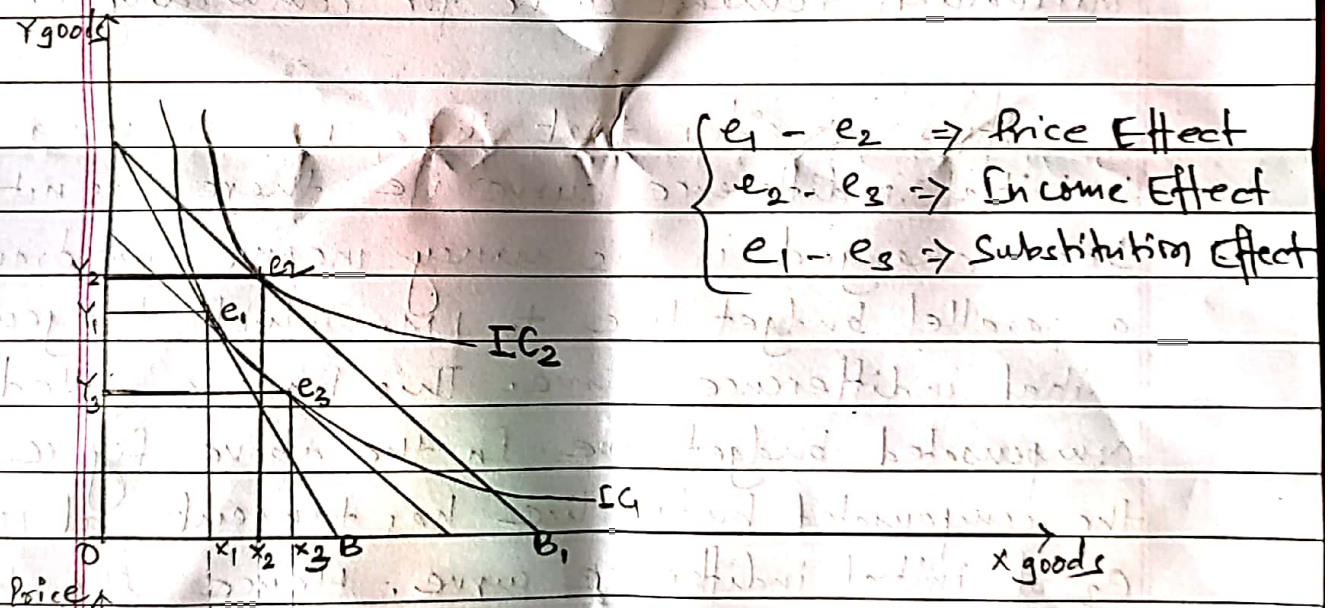 Y goods
e1 - e2 => Price Effect
e2 - e3 => Income Effect
e1 - e3 => Substitution Effect
Y2
e2
Y1
e1
IC2
Y3
e3
IC1
O
x1 x2 x3 B
B1
x goods
Price